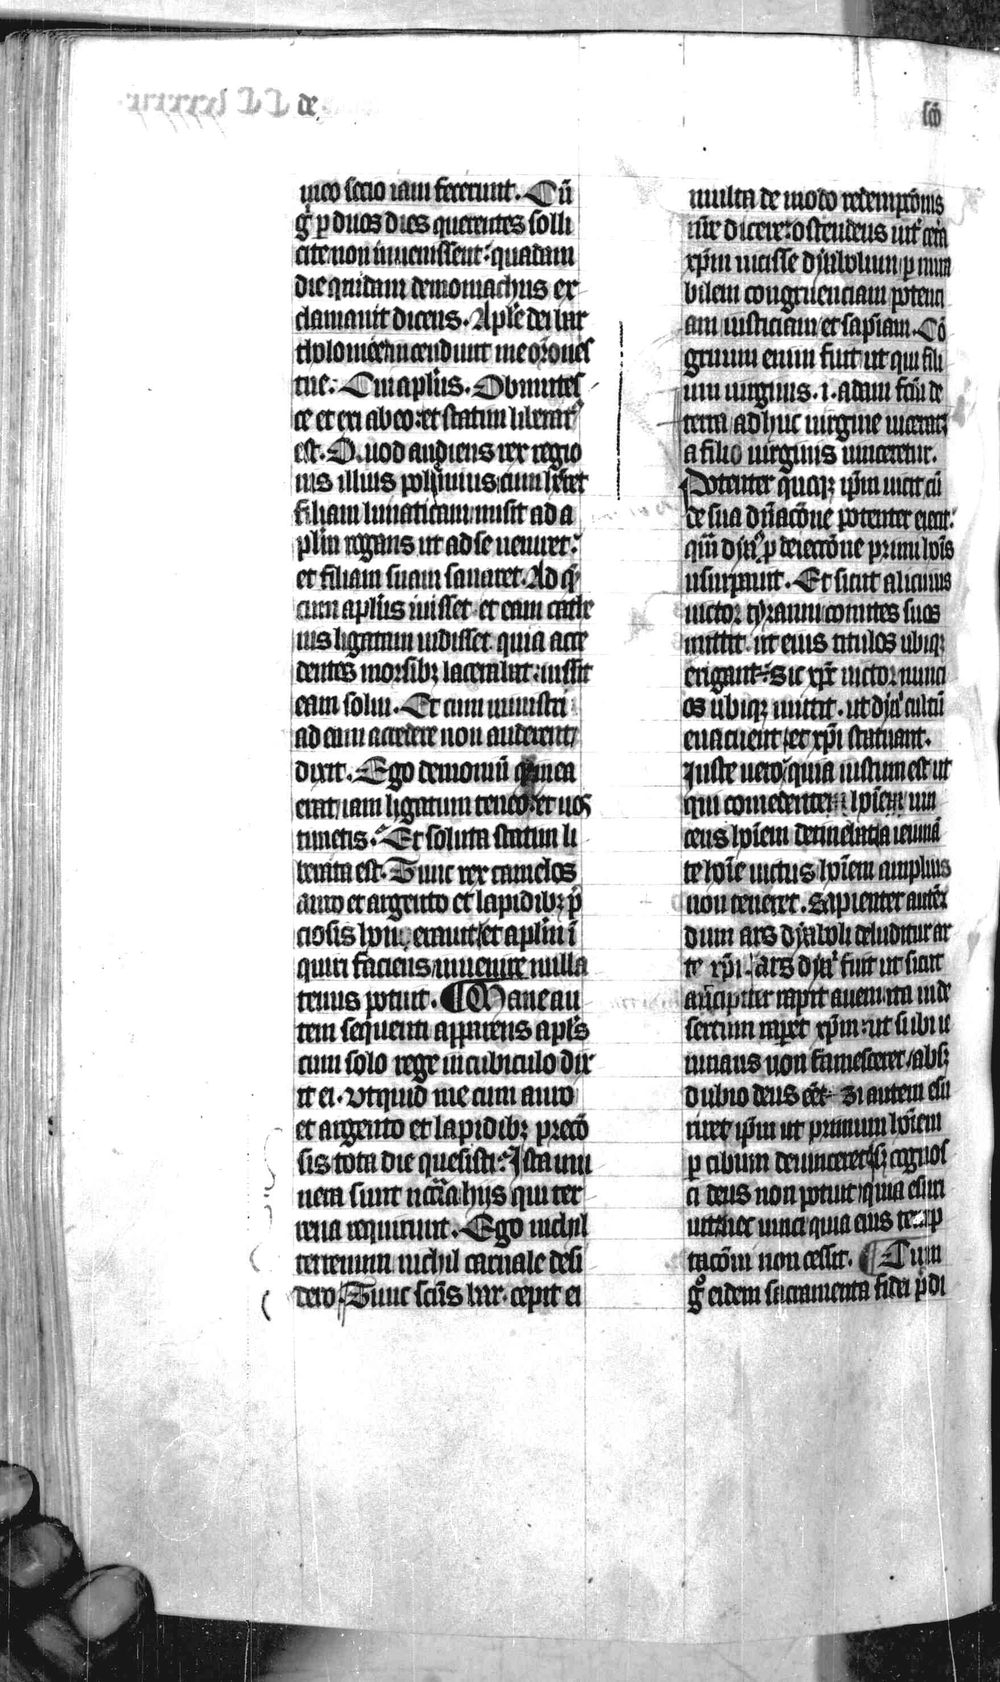 de
sc̄o
meo socio iam fecerunt. Cū
g̊ p duos dies querentes solli
cite non inuenissent: quadam
die quidam demoniachus ex
clamauit dicens. Apl̄e dei bar
tholomee incendunt me or̄ones
tue: Cui apl̄us. Obmutes
ce et exi ab eo: et statim liberatꝰ
est. Quod audiens rex regio
nis illius polimius cum hr̄et
filiam lunaticam misit ad a
pl̄m rogans ut ad se ueniret:
et filiam suam sanaret. Ad q̄
cum apl̄us iuisset et eam cathe
nis ligatam uidisset quia acce
dentes morsibꝫ lacerabat: iussit
eam solui. Et cum ministri
ad eam accedere non auderent
dixit. Ego demoniū q in ea
erat iam ligatum teneo: et uos
timetis. Et soluta statim li
berata est. Tunc rex camelos
auro et argento et lapidibꝫ p̄
ciosis honerauit et apl̄m ī
quiri faciens inuenire nulla
tenus potuit. ¶ Mane au
tem sequenti apparens apl̄s
cum solo rege in cubiculo dix
it ei. Vtquid me cum auro
et argento et lapidibꝫ precō
sis tota die quesisti: Ista mu
nera sunt nccr̄ia hijs qui ter
rena requirunt. Ego nichil
terrenum nichil carnale desi
dero Tunc scūs bar. cepit ei
multa de modo redempcōnis
nr̄e dicere: ostendens int̄ cet̄a
xp̄m uicisse dyabolum p mira
bilem congruenciam potenci
am iusticiam et sapiam. Cō
gruum enim fuit ut qui fili
um uirginis .i. adam fc̄m de
terra adhuc uirgine uicerat
a filio uirginis uinceretur.
Potenter quoqꝫ ip̄m uicit cū
de sua dn̄acōne potenter eiecit:
qm̄ dyaꝰ p deiectōne primi hoīs
usurpauit. Et sicut alicuius
uictor tyranni comites suos
mittit ut eius titulos ubiqꝫ
erigant: Sic xp̄c uictor nunci
os ubiqꝫ mittit. ut dyal̄ cultū
euacuent et xp̄i statuant.
Iuste uero quia iustum est ut
qui comedentem hoīem uin
cens hoīem detinebat a ieiunā
te hoīe uictus hoīem amplius
non teneret. Sapienter autē
dum ars dyaboli deluditur ar
te xp̄i. Ars dyal̄ fuit ut sicut
aucipiter rapit auem ita in de
sertum raperet xp̄m: ut si ibi ie
iunans non famesceret absqꝫ
dubio deus eēt. Si autem esu
riret ip̄m ut primum hoīem
p cibum deuinceret sꝫ cognos
ci deus non potuit quia esuri
uit nec uinci quia eius temp
tacōni non cessit. ¶ Cum
g̊ eidem sacramenta fidei p̄di